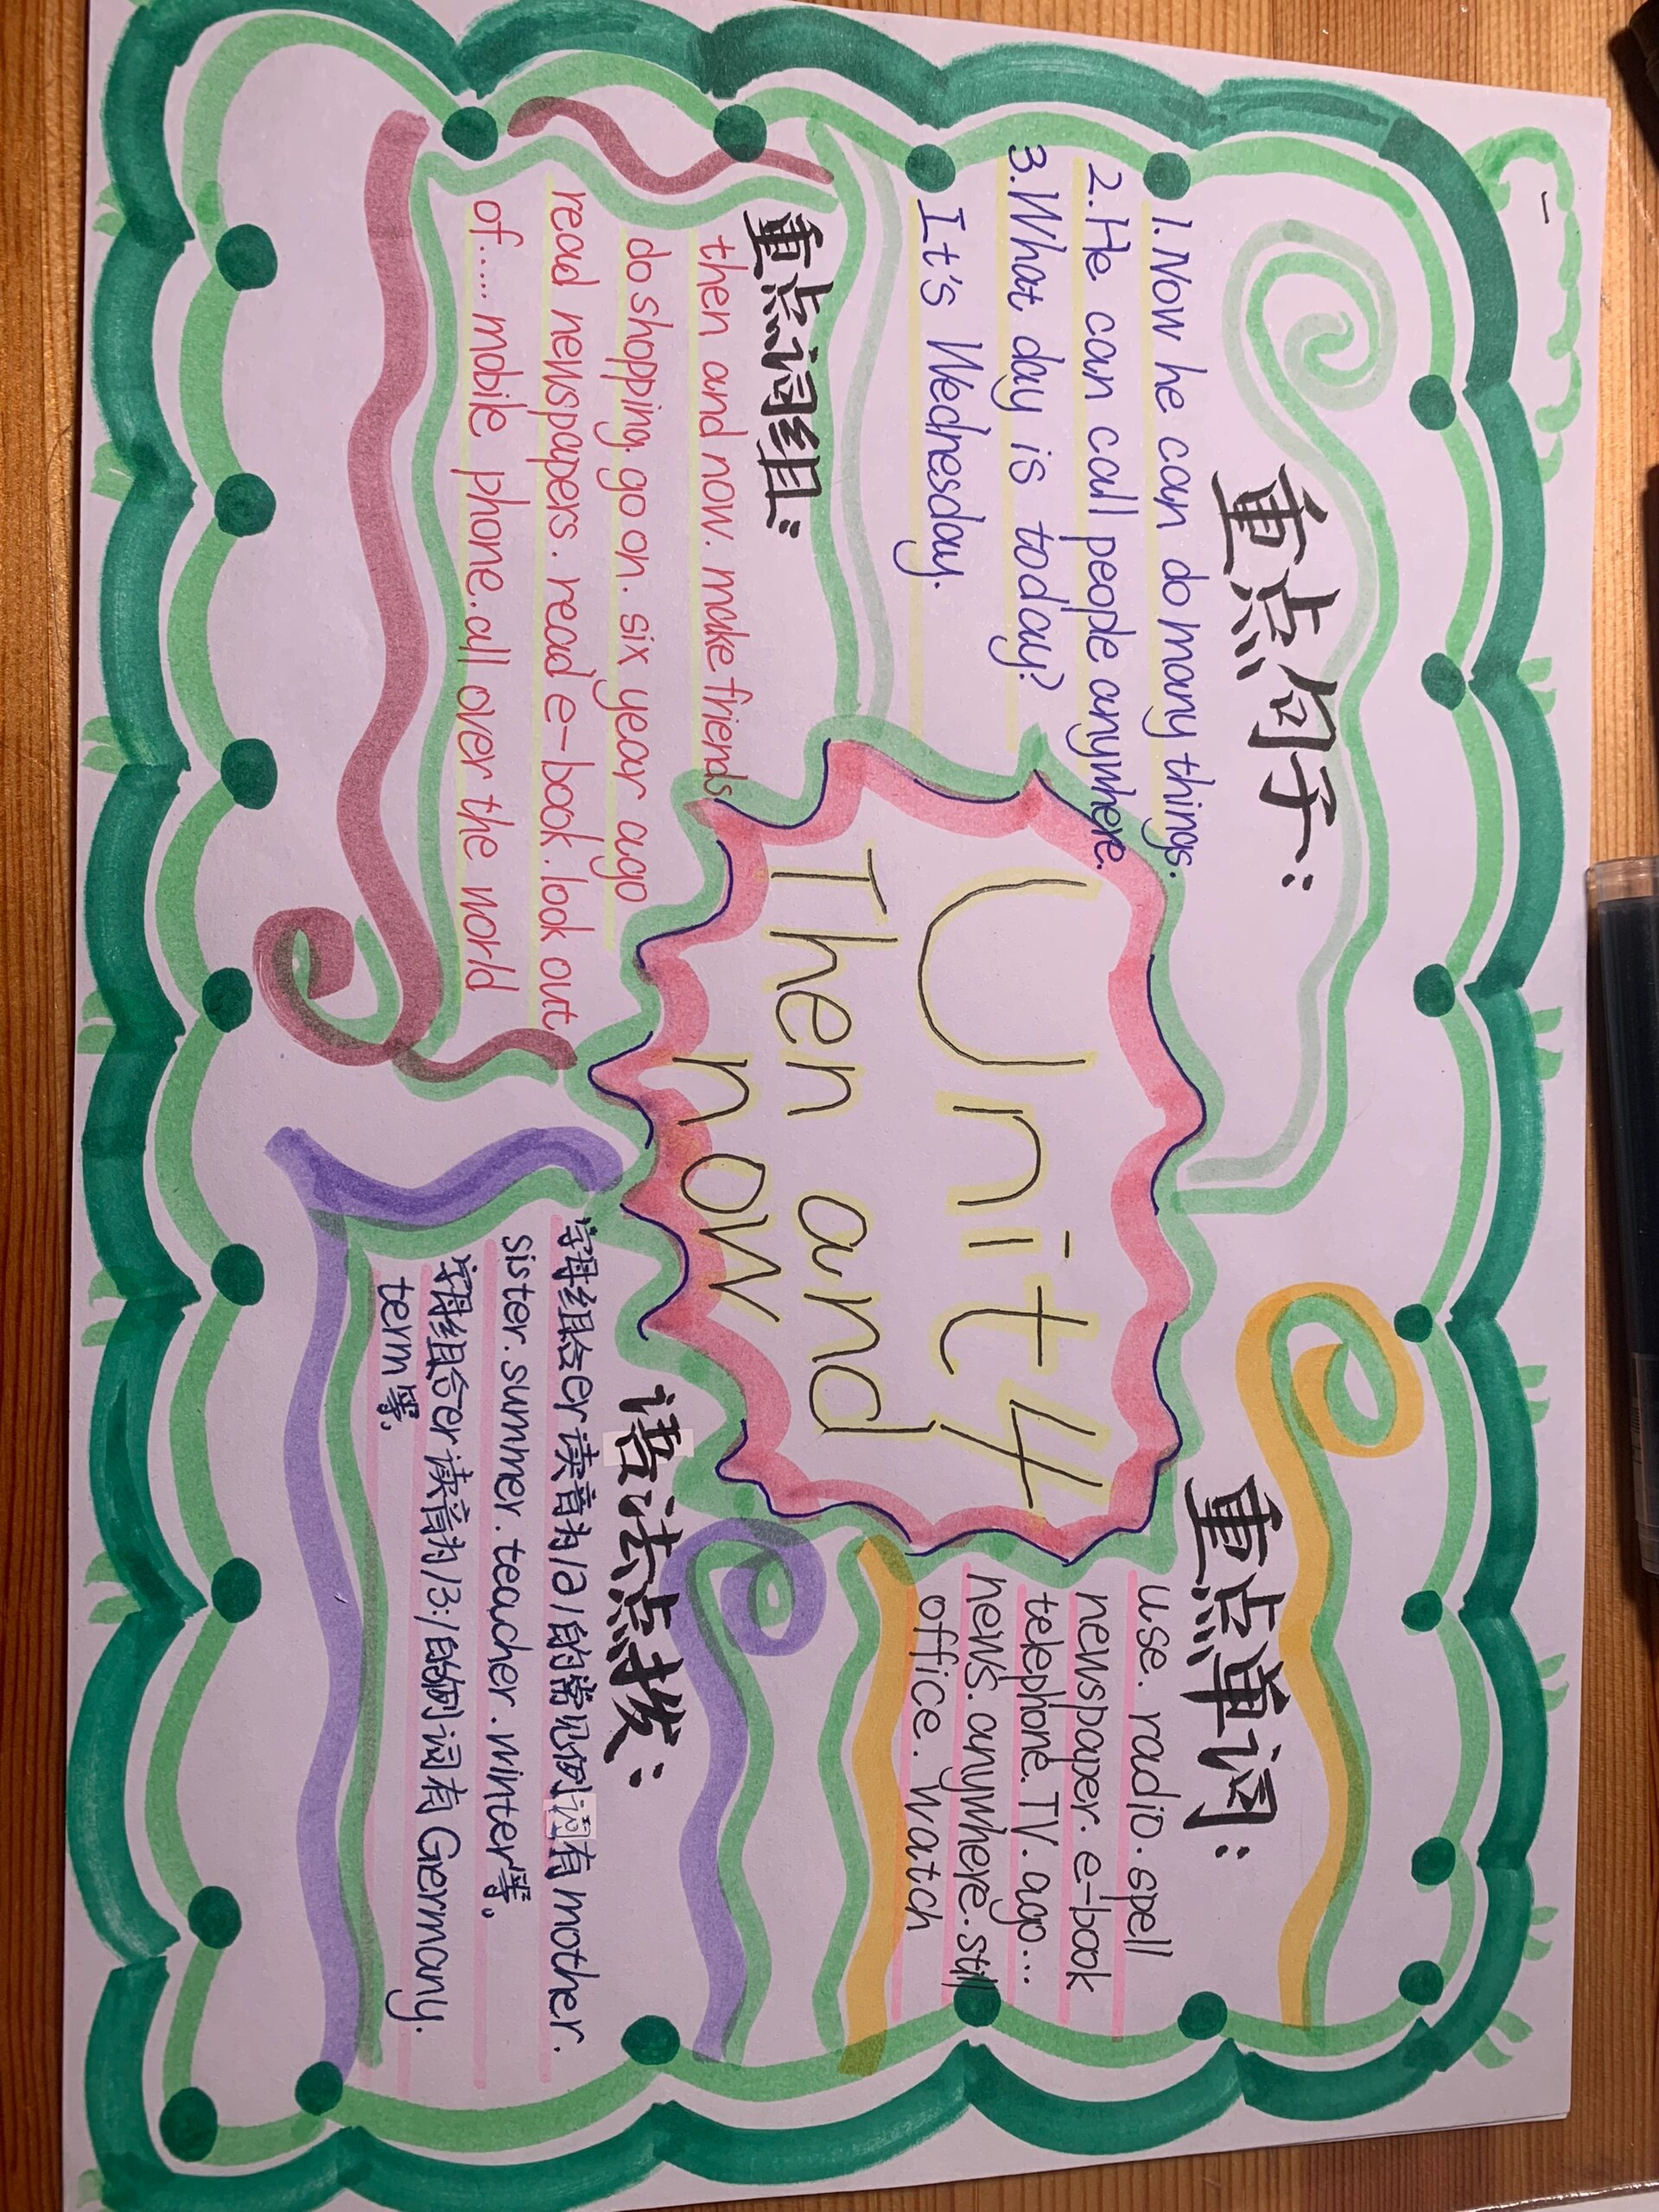 重点句子：
1.Now he can do many things.
2.He can call people anywhere.
3.What day is today?
It's Wednesday.
重点单词：
use. radio. spell
newspaper. e-book
telephone. TV. ago...
news. anywhere. still
office. Watch
Unit 4
Then and
now
重点词组：
then and now. make friends
do shopping. go on. six year ago
read newspapers. read e-book. look out
of.... mobile phone. all over the world
语法点拨：
字母组合er读音为/ə/的常见例词有mother.
sister. summer. teacher. winter等。
字母组合er读音为/3:/的例词有Germany.
term等.